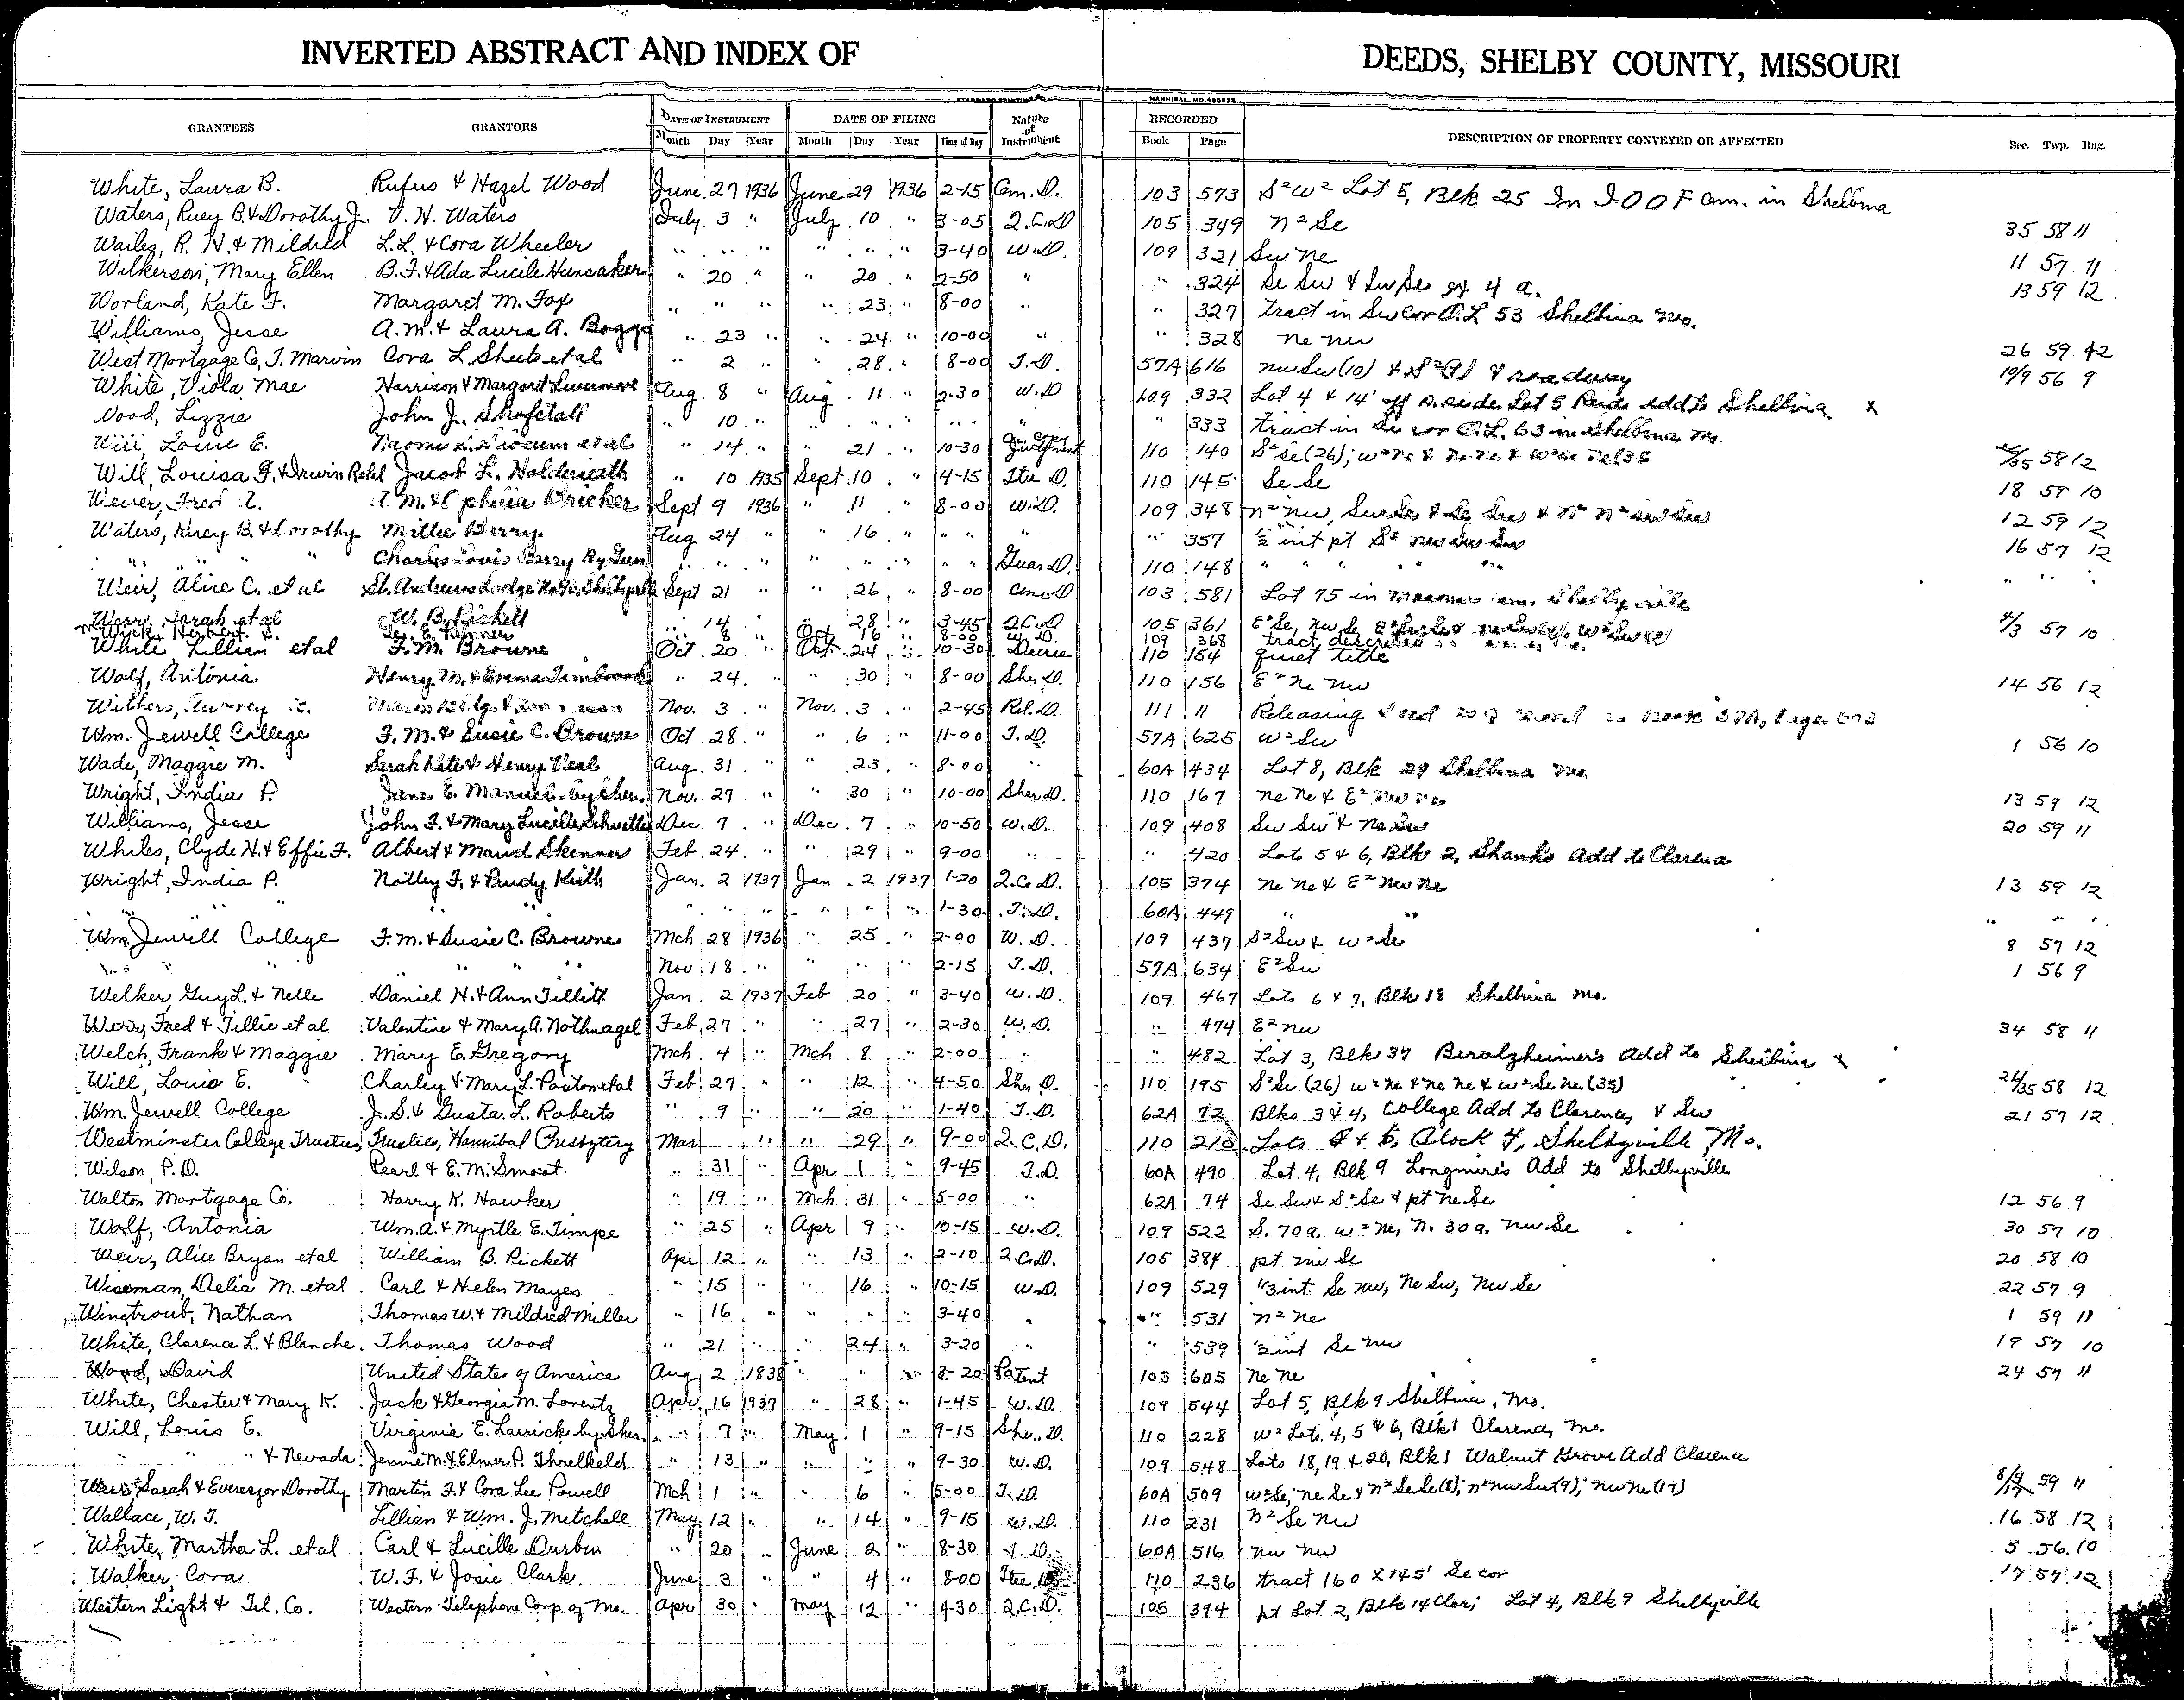 INVERTED ABSTRACT AND INDEX OF DEEDS, SHELBY COUNTY, MISSOURI
STANDARD PRINTING CO HANNIBAL, MO
GRANTEES GRANTORS DATE OF INSTRUMENT DATE OF FILING Nature of Instrument RECORDED DESCRIPTION OF PROPERTY CONVEYED OR AFFECTED Sec. Twp. Rng.
Month Day Year Month Day Year Time of Day Book Page
White, Laura B. Rufus & Hazel Wood June 27 1936 June 29 1936 2-15 Cem. D. 103 573 S²W² Lot 5, Blk 25 In I O O F Cem. in Shelbina
Waters, Ruey B. & Dorothy J. V. H. Waters July 3 " July 10 " 3-05 Q.C.D 105 349 N² Se 35 58 11
Wailes, R. H. & Mildred L.L. & Cora Wheeler " " " " " " 3-40 W.D. 109 321 Sw Ne 11 57 11
Wilkerson, Mary Ellen B.F. & Ada Lucile Hunsaker " 20 " " 20 " 2-50 " " 324 Se Sw & Sw Se ex 4 a. 13 59 12
Worland, Kate F. Margaret M. Fox " " " " 23 " 8-00 " " 327 tract in Sw Cor O.L 53 Shelbina Mo.
Williams, Jesse A.M. & Laura A. Boggs " 23 " " 24 " 10-00 " " 328 Ne Nw 26 59 12
West Mortgage Co, J. Marvin Cora L. Sheets et al " 2 " 28 " 8-00 T.D. 57A 616 Nw Sw (10) & S² (9) & roadway 10/9 56 9
White, Viola Mae Harrison & Margaret Livermore Aug 8 " Aug 11 " 2-30 W.D 109 332 Lot 4 & 14' off side Lot 5 Add to Shelbina x
Wood, Lizzie John J. Shofstall " 10 " " " " " " 333 tract in Se cor O.L. 63 in Shelbina Mo.
Will, Louie E. Naomi et al " 14 " " 21 " 10-30 Judgment 110 140 S² Se (26); W² Ne & Ne Ne & W² Se Ne (35 26/35 58 12
Will, Louisa F. & Irwin Jacob L. Holderieath " 10 1935 Sept 10 " 4-15 Ttee D. 110 145 Se Se 18 59 10
Wever, Fred & Ophelia Bricker Sept 9 1936 " 11 " 8-00 W.D. 109 348 N² Nw, 12 59 12
Waters, Ruey B. & Dorothy Millie Berry Aug 24 " " 16 " " " " " 357 ½ int pt S² Nw Sw Sw 16 57 12
" " " Charles Louis Berry By Guar. " " " " " " " " Guar D. 110 148 " " " " " " " "
Weir, Alice C. et al St. Andrews Lodge Shelbyville Sept 21 " " 26 " 8-00 Cem D 103 581 Lot 75 in Masonic Cem. Shelbyville
Sarah et al W. B. Pickett " 14 " " 28 " 3-45 Q.C.D 105 361 E² Se, Nw Se 4/3 57 10
Herbert S. " 8 " Oct 16 " 8-00 W.D. 109 368 tract described
White Lillian et al F.M. Browne Oct 20 " Oct 24 " 10-30 Decree 110 154 quiet title
Wolf, Antonia Henry M. & Emma Timbrook " 24 " " 30 " 8-00 Sher D. 110 156 E² Ne Nw 14 56 12
Withers, Aubrey Nov. 3 " Nov. 3 " 2-45 Rel. D. 111 11 Releasing Book 57A, Page 603
Wm. Jewell College F.M. & Susie C. Browne Oct 28 " " 6 " 11-00 T.D. 57A 625 W² Sw 1 56 10
Wade, Maggie M. Sarah Kate & Henry Veal Aug. 31 " " 23 " 8-00 " 60A 434 Lot 8, Blk 29 Shelbina Mo.
Wright, India P. Jane E. Manuel by Sher. Nov. 27 " " 30 " 10-00 Sher D. 110 167 Ne Ne & E² Nw Ne 13 59 12
Williams, Jesse John F. & Mary Lucille Schuetter Dec. 7 " Dec. 7 " 10-50 W.D. 109 408 Sw Sw & Ne Sw 20 59 11
Whiles, Clyde H. & Effie F. Albert & Maud Skinner Feb 24 " " 29 " 9-00 " " 420 Lots 5 & 6, Blk 2, Shanks Add to Clarence
Wright, India P. Notley F. & Prudy Keith Jan. 2 1937 Jan 2 1937 1-20 Q.C.D. 105 374 Ne Ne & E² Nw Ne 13 59 12
" " " " " " " " " " 1-30 T.D. 60A 449 " " " " "
Wm. Jewell College F.M. & Susie C. Browne Mch 28 1936 " 25 " 2-00 W.D. 109 437 S² Sw & W² Se 8 57 12
" " " " " Nov 18 " " " " 2-15 T.D. 57A 634 E² Sw 1 56 9
Welker, Guy L. & Nelle Daniel H. & Ann Tillitt Jan. 2 1937 Feb 20 " 3-40 W.D. 109 467 Lots 6 & 7, Blk 18 Shelbina Mo.
Weir, Fred & Tillie et al Valentine & Mary A. Nothnagel Feb. 27 " " 27 " 2-30 W.D. " 474 E² Nw 34 58 11
Welch, Frank & Maggie Mary E. Gregory Mch 4 " Mch 8 " 2-00 " " 482 Lot 3, Blk 37 Beralzheimer's Add to Shelbina x
Will, Louis E. Charley & Mary L. Paxton et al Feb. 27 " " 12 " 4-50 Sher D. 110 195 S² Se (26) W² Ne & Ne Ne & W² Se Ne (35) 26/35 58 12
Wm. Jewell College J.S. & Gusta L. Roberts " 9 " " 20 " 1-40 T.D. 62A 72 Blks 3 & 4, College Add to Clarence, & Sw 21 57 12
Westminster College Trustees, Trustees, Hannibal Presbytery Mar " " 29 " 9-00 Q.C.D. 110 210 Lots & 6, Block 4, Shelbyville, Mo.
Wilson, P.D. Pearl & E.M. Smoot " 31 " Apr 1 " 9-45 T.D. 60A 490 Lot 4, Blk 9 Longmire's Add to Shelbyville
Walton Mortgage Co. Harry K. Hawker " 19 " Mch 31 " 5-00 " 62A 74 Se Sw & S² Se & pt Ne Se 12 56 9
Wolf, Antonia Wm. A. & Myrtle E. Timpe " 25 " Apr 9 " 10-15 W.D. 109 522 S. 70 a. W² Ne, N. 30 a. Nw Se 30 57 10
Weir, Alice Bryan et al William B. Pickett Apr 12 " " 13 " 2-10 Q.C.D. 105 384 pt Nw Se 20 58 10
Wiseman, Delia M. et al Carl & Helen Mayes " 15 " " 16 " 10-15 W.D. 109 529 ⅓ int. Se Nw, Ne Sw, Nw Se 22 57 9
Winetroub, Nathan Thomas W. & Mildred Miller " 16 " " " " 3-40 " " 531 N² Ne 1 59 11
White, Clarence L. & Blanche Thomas Wood " 21 " " 24 " 3-20 " " 539 ½ int Se Nw 19 57 10
Wood, David United States of America Aug 2 1838 " " " 3-20 Patent 103 605 Ne Ne 24 57 11
White, Chester & Mary K. Jack & Georgia M. Lorentz Apr 16 1937 " 28 " 1-45 W.D. 109 544 Lot 5, Blk 9 Shelbina, Mo.
Will, Louis E. Virginia E. Larrick by Sher. " 7 " May 1 " 9-15 Sher. D. 110 228 W² Lots 4, 5 & 6, Blk 1 Clarence, Mo.
" " & Nevada Jennie M. & Elmer P. Threlkeld " 13 " " " " 9-30 W.D. 109 548 Lots 18, 19 & 20, Blk 1 Walnut Grove Add Clarence
Sarah & Dorothy Martin F. & Cora Lee Powell Mch 1 " " 6 " 5-00 T.D. 60A 509 W² Se; Ne Se & N² Se Se (8); N² Nw Sw (9); Nw Ne (17) 8/9/17 59 11
Wallace, W.T. Lillian & Wm. J. Mitchell May 12 " " 14 " 9-15 W.D. 110 231 N² Se Nw 16 58 12
White, Martha L. et al Carl & Lucille Durbin " 20 " June 2 " 8-30 T.D. 60A 516 Nw Nw 5 56 10
Walker, Cora W.F. & Josie Clark June 3 " " 4 " 8-00 Ttee D. 110 236 tract 160 x 145' Se cor 17 57 12
Western Light & Tel. Co. Western Telephone Corp. of Mo. Apr 30 " May 12 " 9-30 Q.C.D. 105 394 pt Lot 2, Blk 14 Clar; Lot 4, Blk 9 Shelbyville